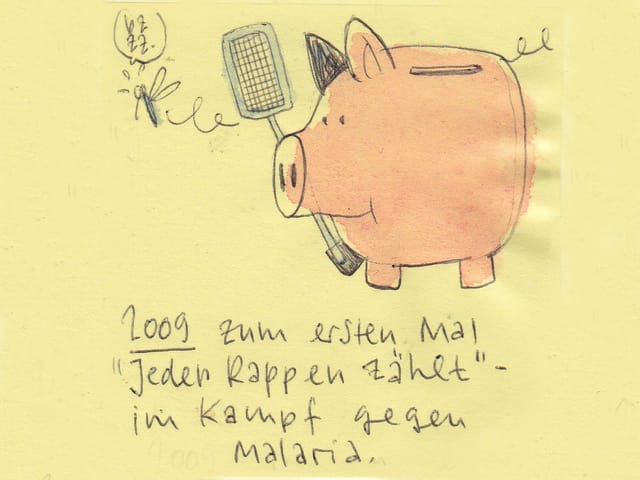 bz
zz.
2009 zum ersten Mal
"Jeder Rappen zählt" -
im Kampf gegen
Malaria.